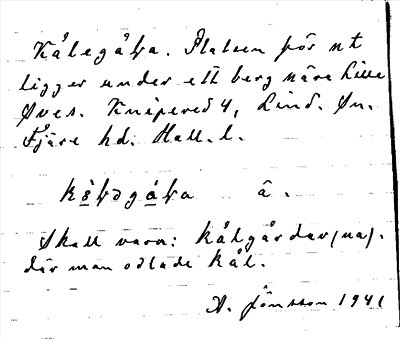 Kålegåɟa. Platsen för nt
ligger under ett berg nära Lille
Øves. Knipered 4, Lind. Sn.
Fjäre hd. Hall. l.
â.
Skall vara: kålgårdar(na).
där man odlade kål.
A. Jönsson 1941